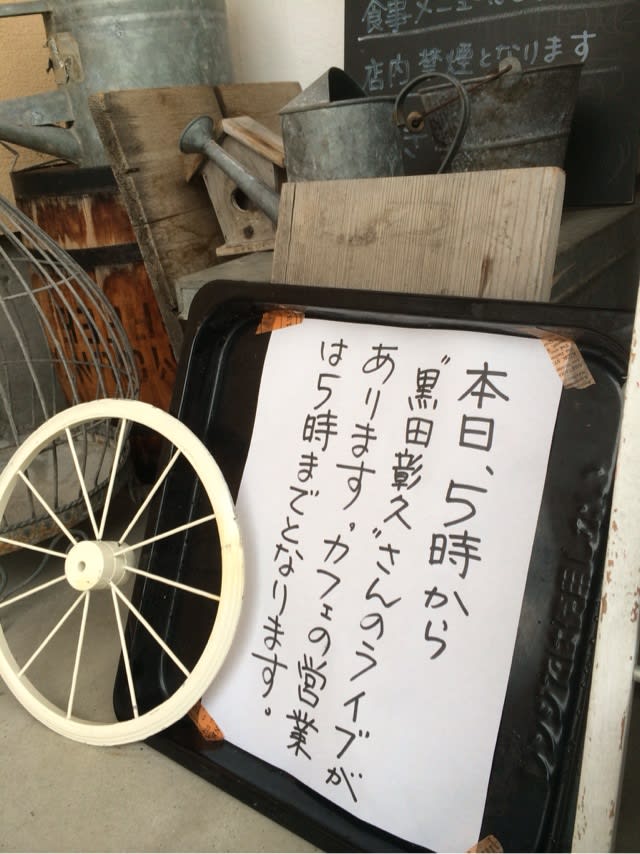 食事メニュー
店内禁煙となります
本日、5時から
"黒田彰久"さんのライブが
あります。カフェの営業
は5時までとなります。